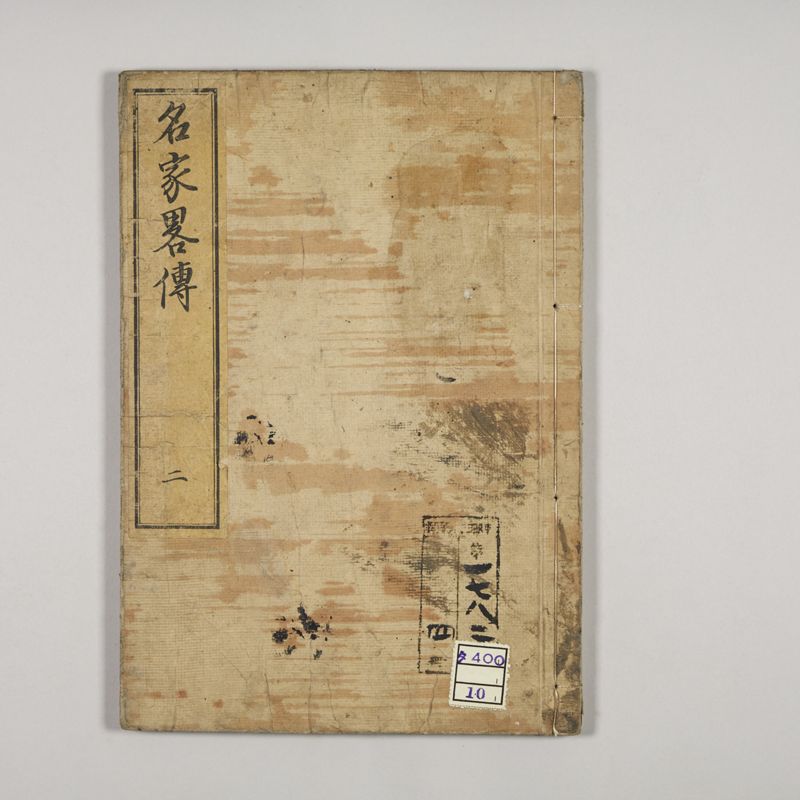 名家畧傳
二
第
一七八二
四
タ400
10